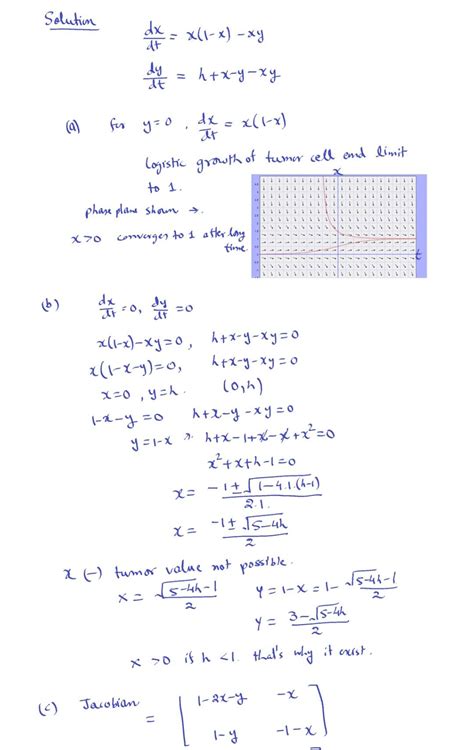 Solution
dx/dt = x(1-x) - xy
dy/dt = h+x-y-xy
(a) for y=0 , dx/dt = x(1-x)
logistic growth of tumor cell and limit
to 1.
x
phase plane shown →.
x>0 converges to 1 after long
time.
t
(b) dx/dt=0, dy/dt=0
x(1-x)-xy=0, h+x-y-xy=0
x(1-x-y)=0, h+x-y-xy=0
x=0, y=h. (0,h)
1-x-y=0 h+x-y-xy=0
y=1-x h+x-1+x-x+x²=0
x²+x+h-1=0
x= (-1±√(1-4.1.(h-1)))/2.1.
x= (-1±√(5-4h))/2
x (-) tumor value not possible.
x= (√(5-4h)-1)/2 y=1-x=1- (√(5-4h)-1)/2
y= (3-√(5-4h))/2
x>0 if h<1. that's why it exist.
(c) Jacobian = [1-2x-y -x
1-y -1-x]